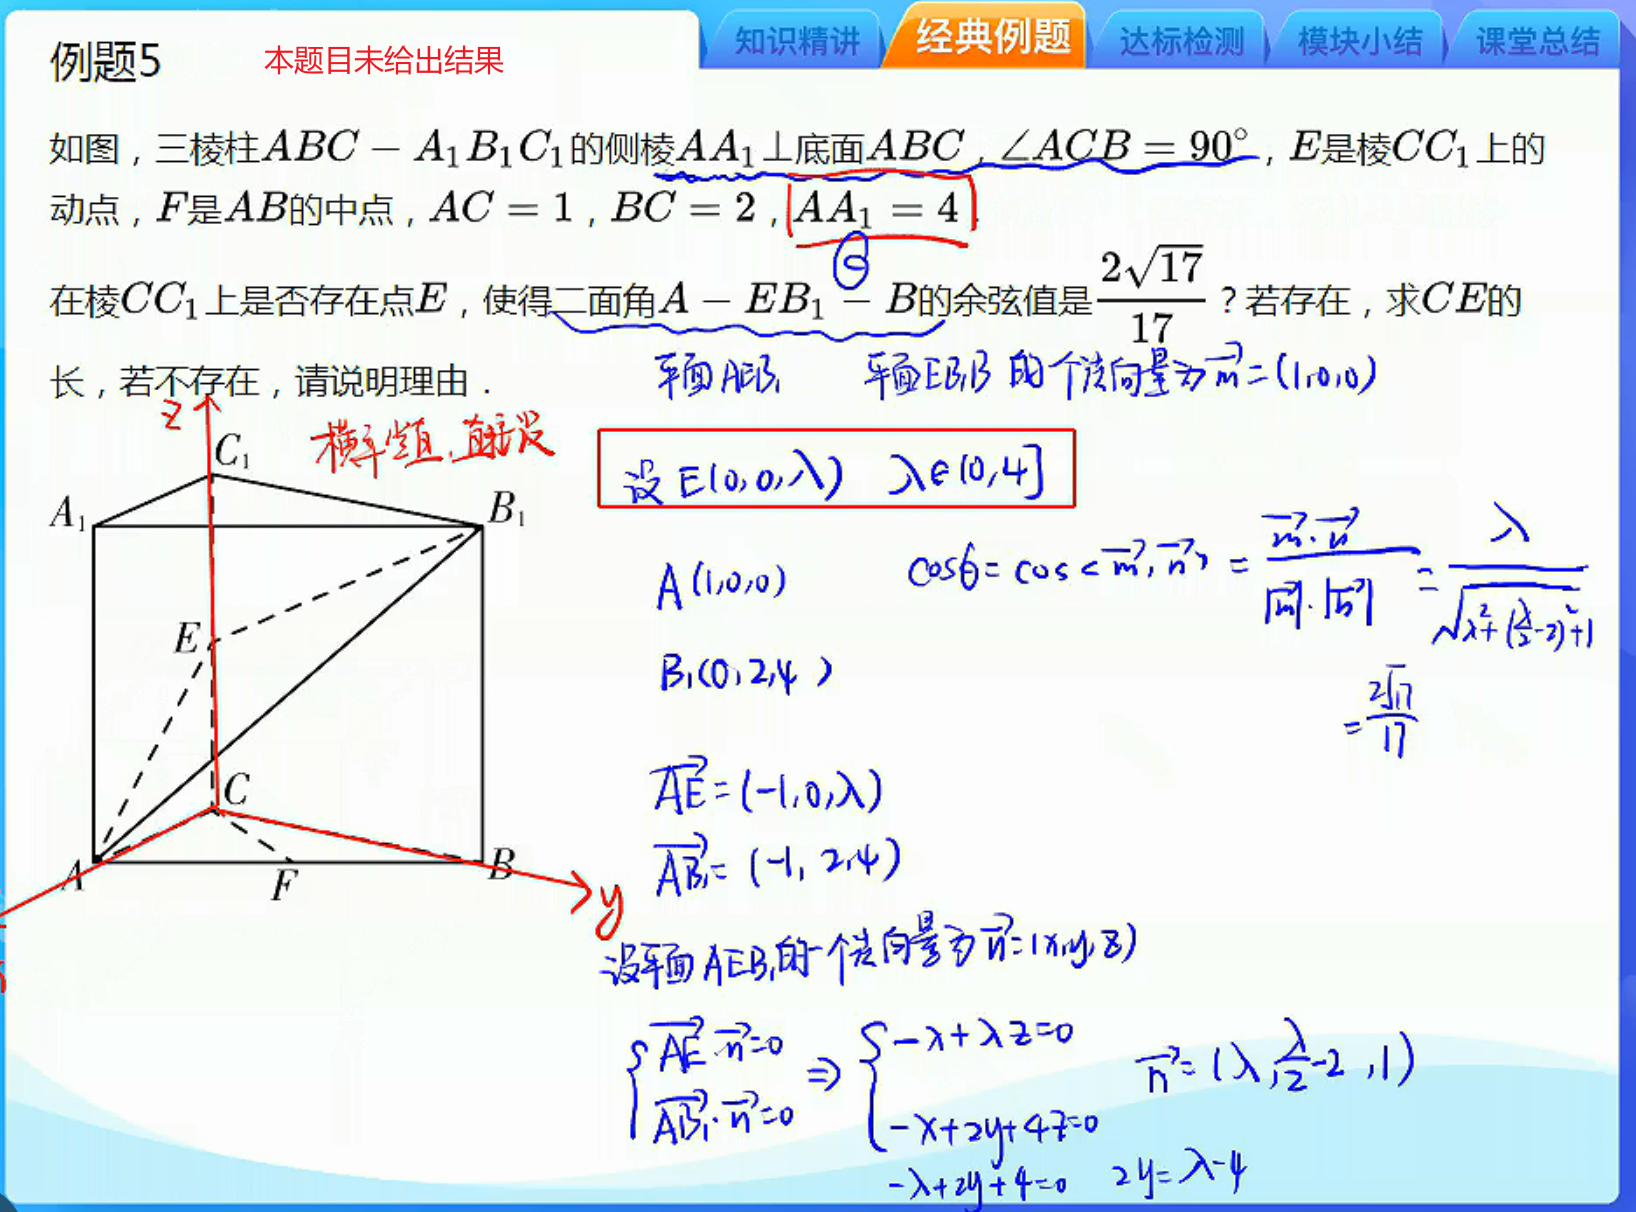 知识精讲 经典例题 达标检测 模块小结 课堂总结
例题5 本题目未给出结果
如图，三棱柱ABC − A₁B₁C₁的侧棱AA₁⊥底面ABC，∠ACB = 90°，E是棱CC₁上的
动点，F是AB的中点，AC = 1，BC = 2，AA₁ = 4.
在棱CC₁上是否存在点E，使得二面角A − EB₁ − B的余弦值是2√17/17？若存在，求CE的
长，若不存在，请说明理由．
θ
平面AEB₁ 平面EB₁B的个法向量为m⃗=(1,0,0)
z
C₁
A₁
B₁
E
C
A
F
B
y
设E(0,0,λ) λ∈(0,4]
A(1,0,0)
B₁(0,2,4)
cosθ=cos<m⃗,n⃗>=m⃗·n⃗/|m⃗|·|n⃗|=λ/√(λ²+(λ/2-2)²+1)
=2√17/17
AE⃗=(-1,0,λ)
AB₁⃗=(-1,2,4)
设平面AEB₁的一个法向量为n⃗=(x,y,z)
{AE⃗·n⃗=0 ⇒ {-x+λz=0
AB₁⃗·n⃗=0 -x+2y+4z=0
n⃗=(λ,λ/2-2,1)
-λ+2y+4=0 2y=λ-4